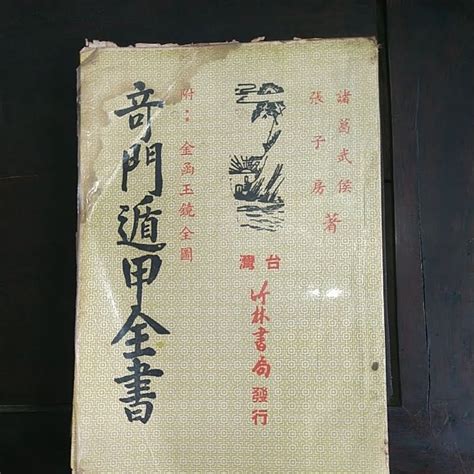 諸葛武侯
張子房
著
台灣
竹林書局
發行
附：金函玉鏡全圖
奇門遁甲全書